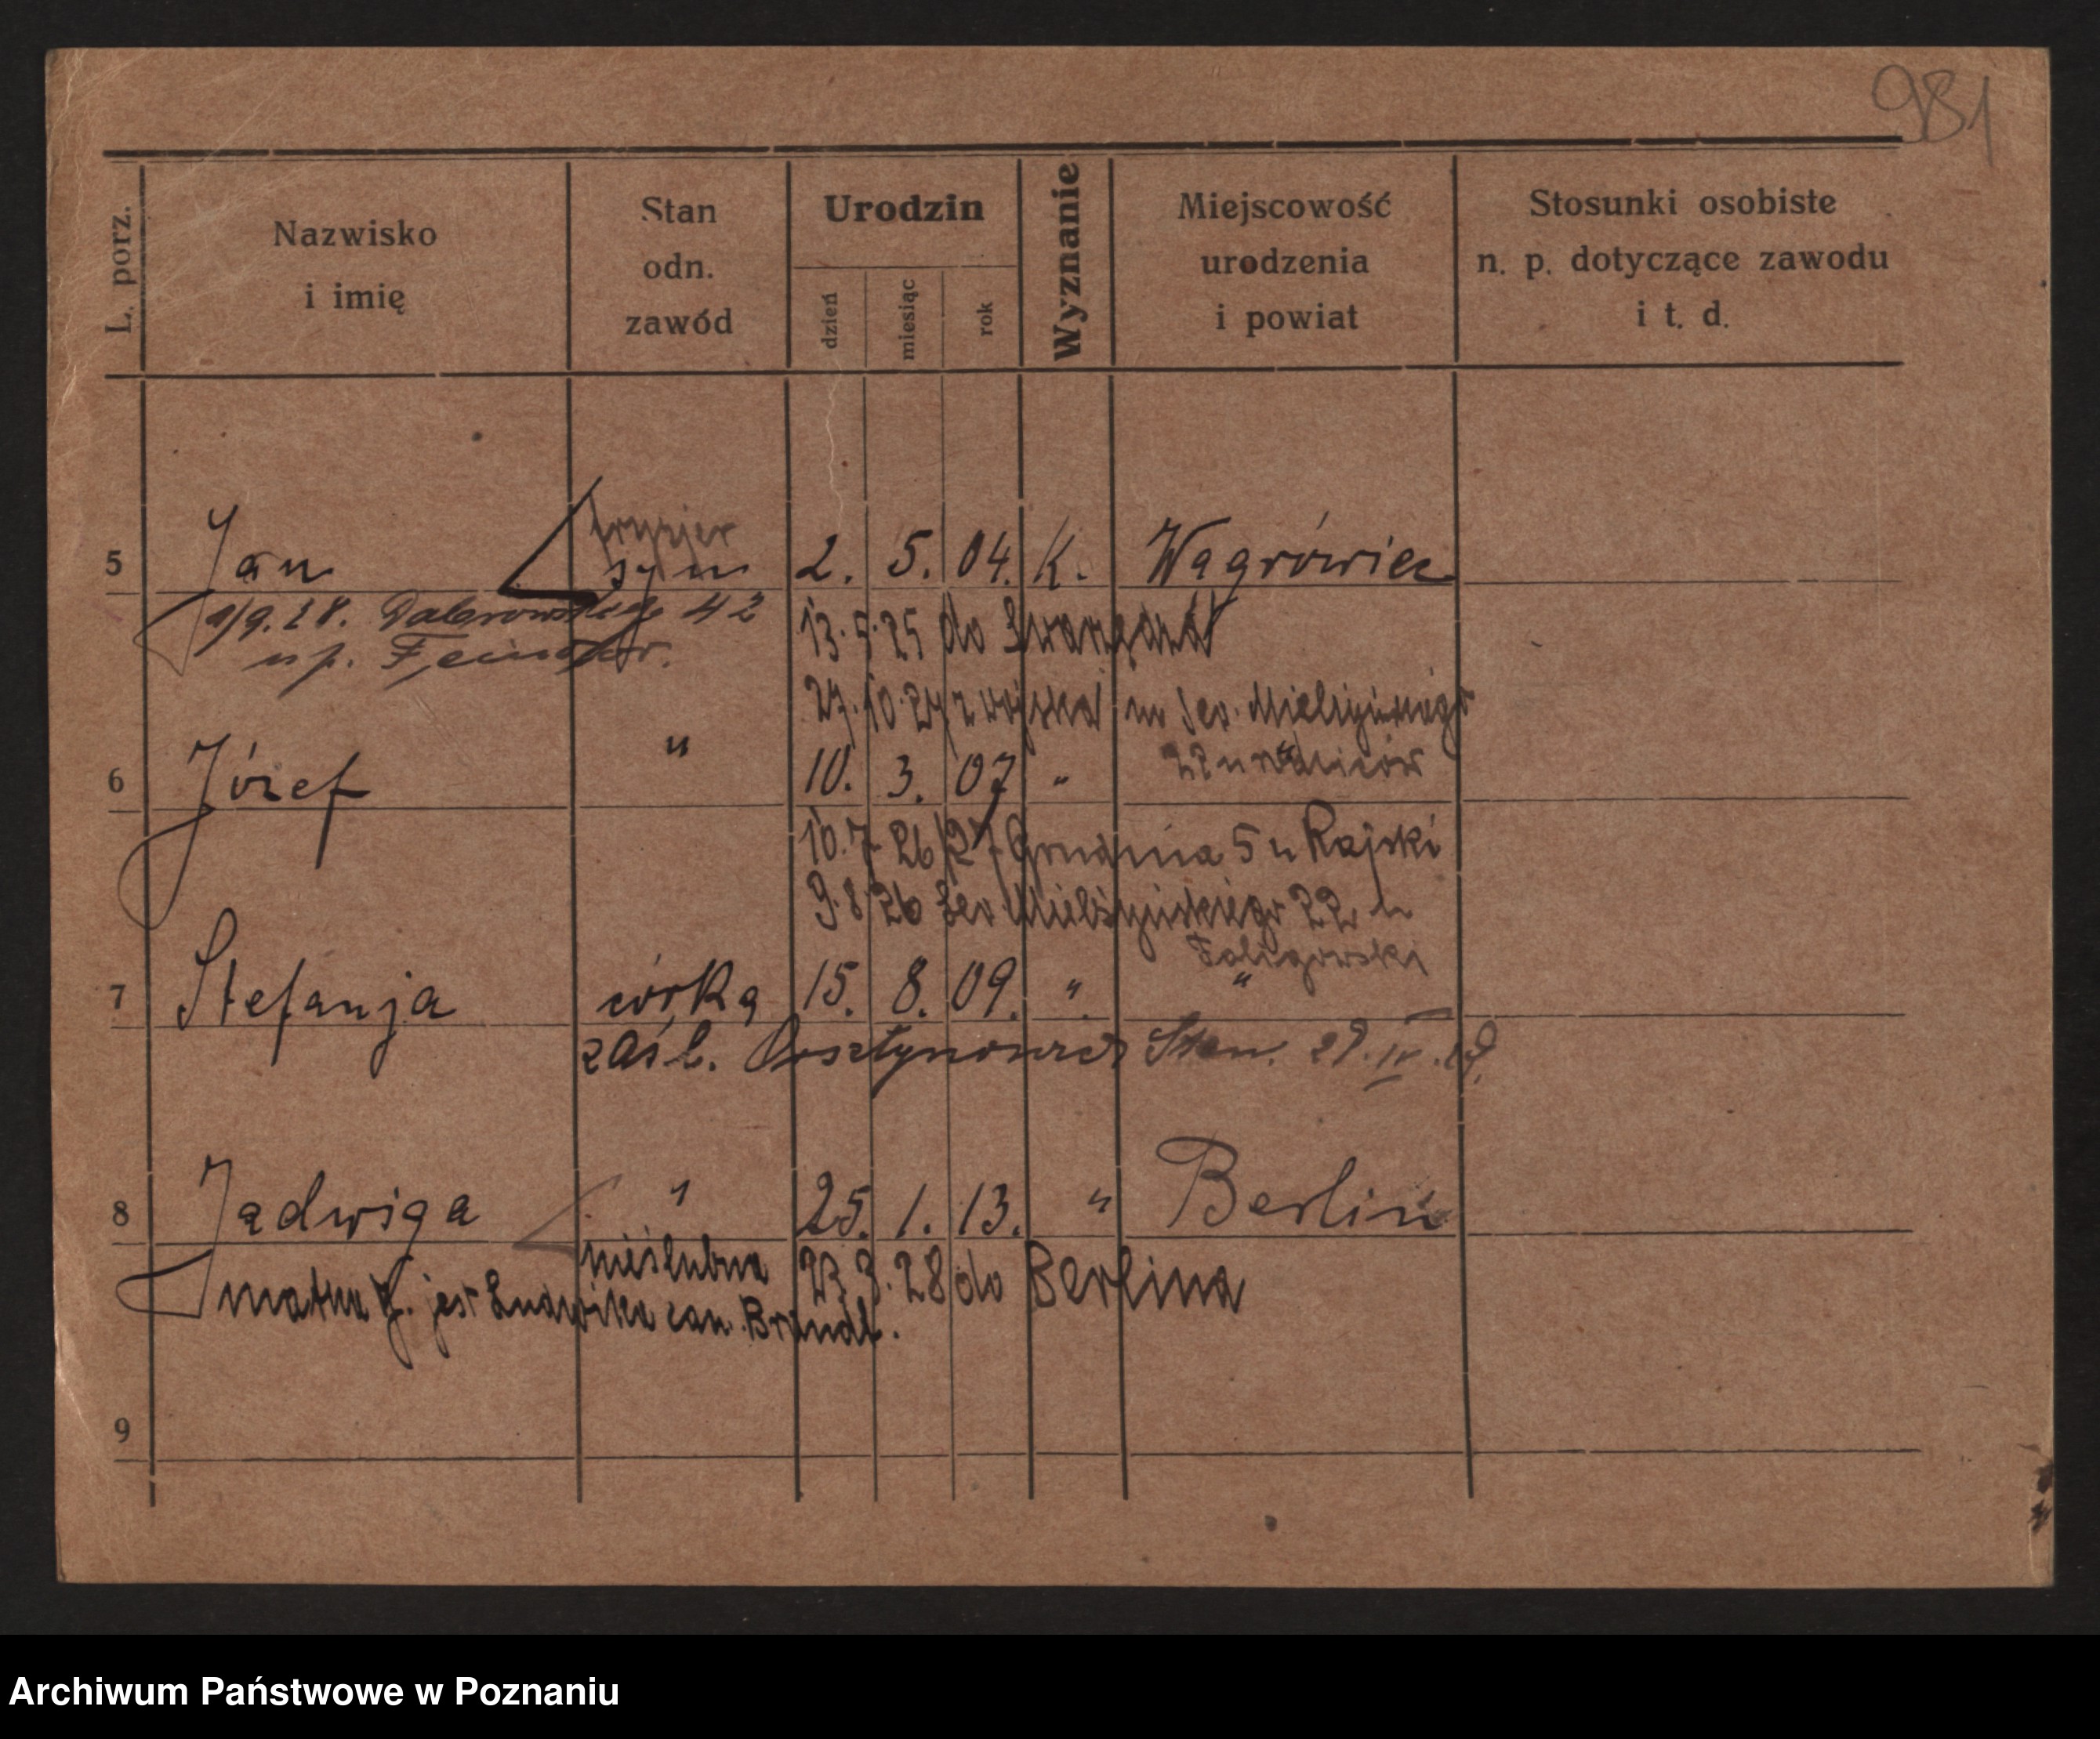 981
L. porz.
Nazwisko
i imię
Stan
odn.
zawód
Urodzin
dzień
miesiąc
rok
Wyznanie
Miejscowość
urodzenia
i powiat
Stosunki osobiste
n. p. dotyczące zawodu
i t. d.
fryzjer
5 Jan syn 2. 5. 04. K. Wągrówiec
1/9.28. Dabrowskiego 42
13.5.25 do Swarzędza
27.10.27 z wojska Sew. Mielżyńskiego
6 Józef " 10. 3. 07 " 22 "
10.7.26 27 Grudnia 5 u Rajski
9.8.26 Sew. Mielżyńskiego 22 u
Faligowski
7 Stefanja córka 15. 8. 09. " "
zaśl. Stan.
8 Jadwiga " 25. 1. 13. " Berlin
nieślubna 23.3.28 do Berlina
matka J. jest Ludwika Brandt.
9
Archiwum Państwowe w Poznaniu